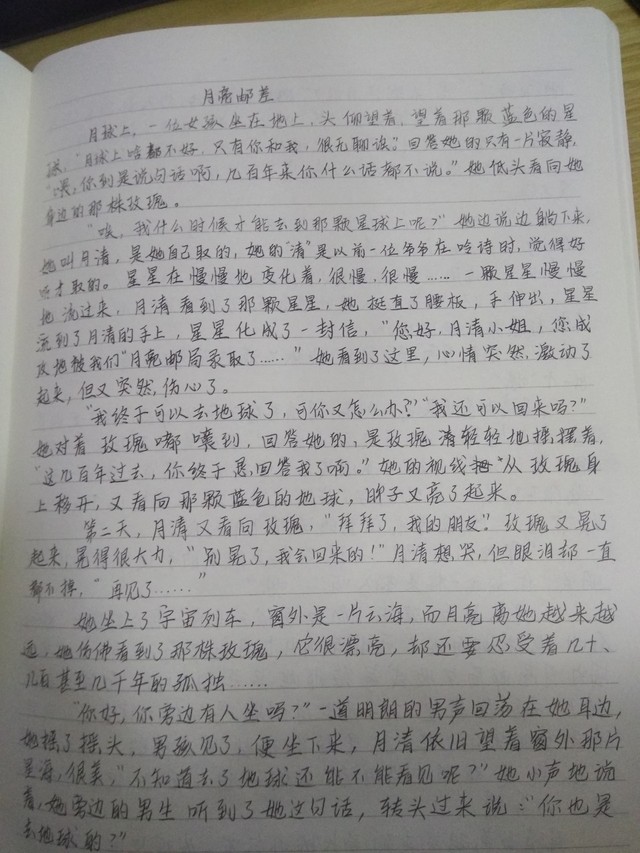 月亮邮差
月球上，一位女孩坐在地上，头俯望着，望着那颗蓝色的星
球，"月球上啥都不好，只有你和我，很无聊诶。"回答她的只有一片寂静，
"喂，你到是说句话啊，几百年来你什么话都不说。"她低头看向她
身边的那株玫瑰。
"唉，我什么时候才能去到那颗星球上呢？"她边说边躺下来，
她叫月清，是她自己取的，她的"清"是以前一位爷爷在吟诗时，觉得好
听才取的。星星在慢慢地变化着，很慢，很慢……一颗星星慢慢
地流过来，月清看到了那颗星星，她挺直了腰板，手伸出，星星
流到了月清的手上，星星化成了一封信，"您好，月清小姐，您成
功地被我们"月亮邮局录取了……"她看到了这里，心情突然激动了
起来，但又突然伤心了。
"我终于可以去地球了，可你又怎么办？""我还可以回来吗？"
她对着玫瑰嘟囔到，回答她的，是玫瑰清轻轻地摇摆着，
"这几百年过去，你终于愿回答我了啊。"她的视线从玫瑰身
上移开，又看向那颗蓝色的地球，眸子又亮了起来。
第二天，月清又看向玫瑰，"拜拜了，我的朋友"。玫瑰又晃了
起来，晃得很大力，"别晃了，我会回来的！"月清想哭，但眼泪却一直
都不掉，"再见了……"
她坐上了宇宙列车，窗外是一片云海，而月亮离她越来越
远，她仿佛看到了那株玫瑰，它很漂亮，却还要忍受着几十、
几百甚至几千年的孤独……
"你好，你旁边有人坐吗？"一道明朗的男声回荡在她耳边，
她摇了摇头，男孩见了，便坐下来，月清依旧望着窗外那片
星海，很美，"不知道去了地球还能不能看见呢？"她小声地说
着，她旁边的男生听到了她这句话，转头过来说："你也是
去地球的？"